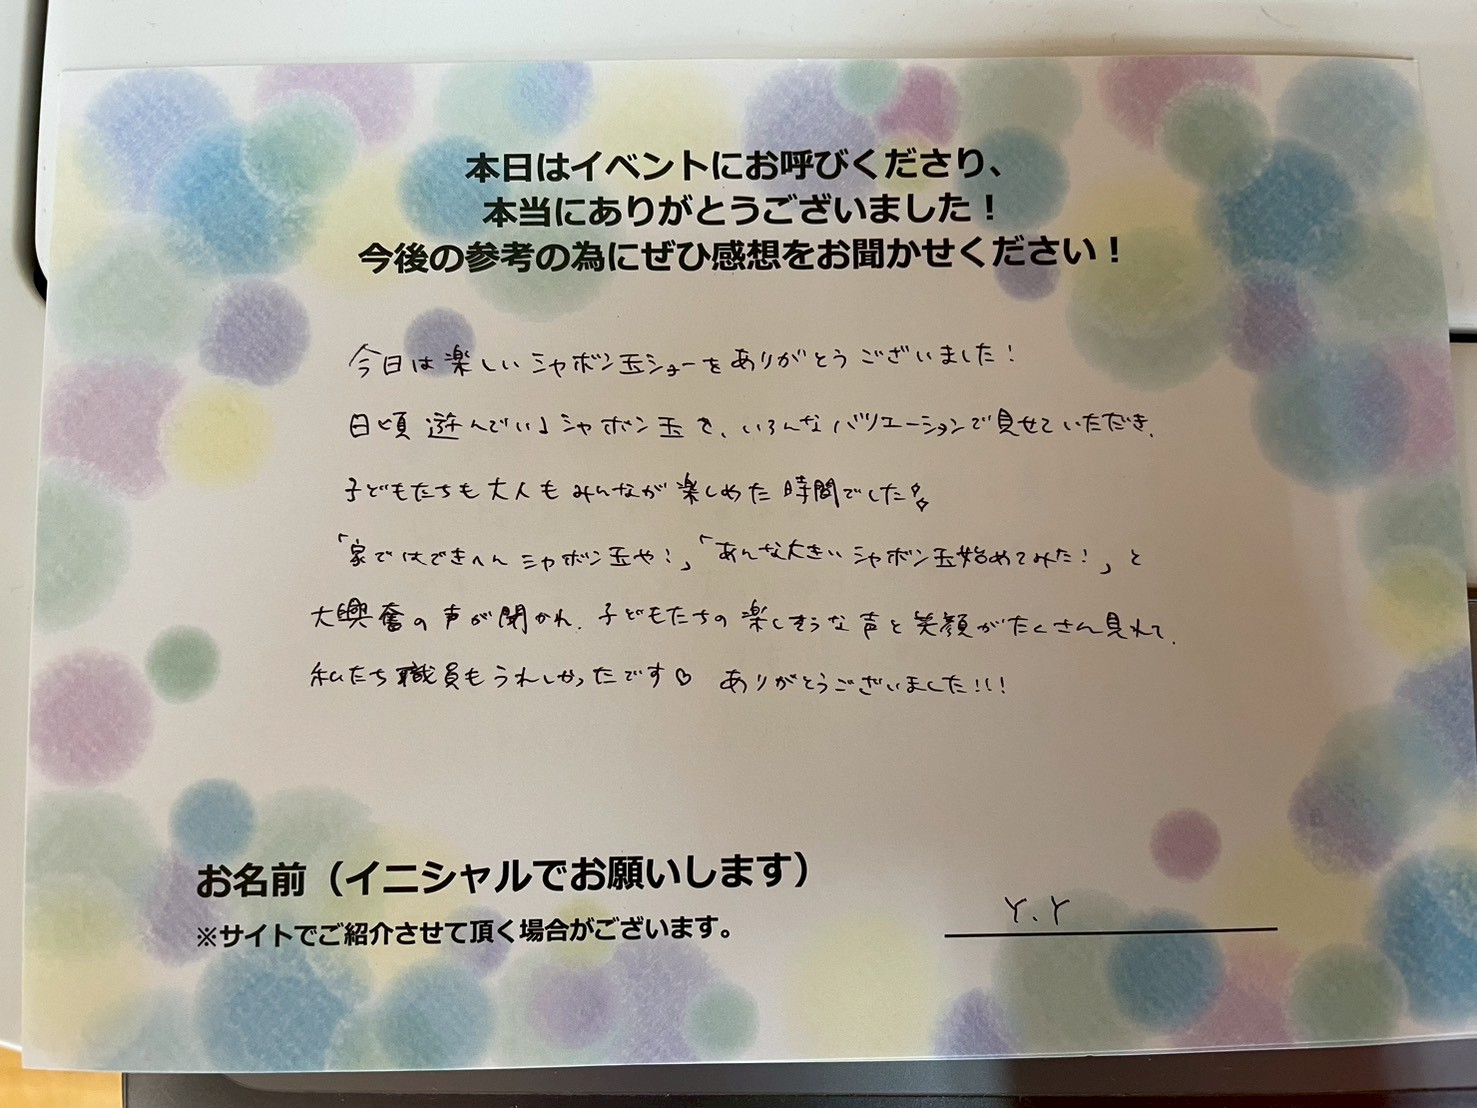 本日はイベントにお呼びくださり、
本当にありがとうございました！
今後の参考の為にぜひ感想をお聞かせください！
今日は楽しいシャボン玉ショーをありがとうございました！
日頃遊んでいるシャボン玉を、いろんなバリエーションで見せていただき、
子どもたちも大人もみんなが楽しめた時間でした!!
「家ではできへんシャボン玉や！」「あんな大きいシャボン玉始めてみた！」と
大興奮の声が聞かれ、子どもたちの楽しそうな声と笑顔がたくさん見れて、
私たち職員もうれしかったです♡ ありがとうございました!!!
お名前（イニシャルでお願いします）
※サイトでご紹介させて頂く場合がございます。
Y.Y